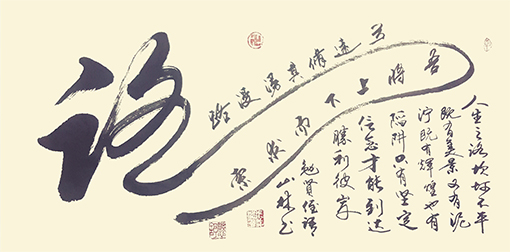 路
路漫漫其修遠兮
吾將上下而求索
人生之路坎坷不平
既有美景又有泥
泞既有輝煌也有
陷阱只有坚定
信念才能到达
勝利彼岸
山林书